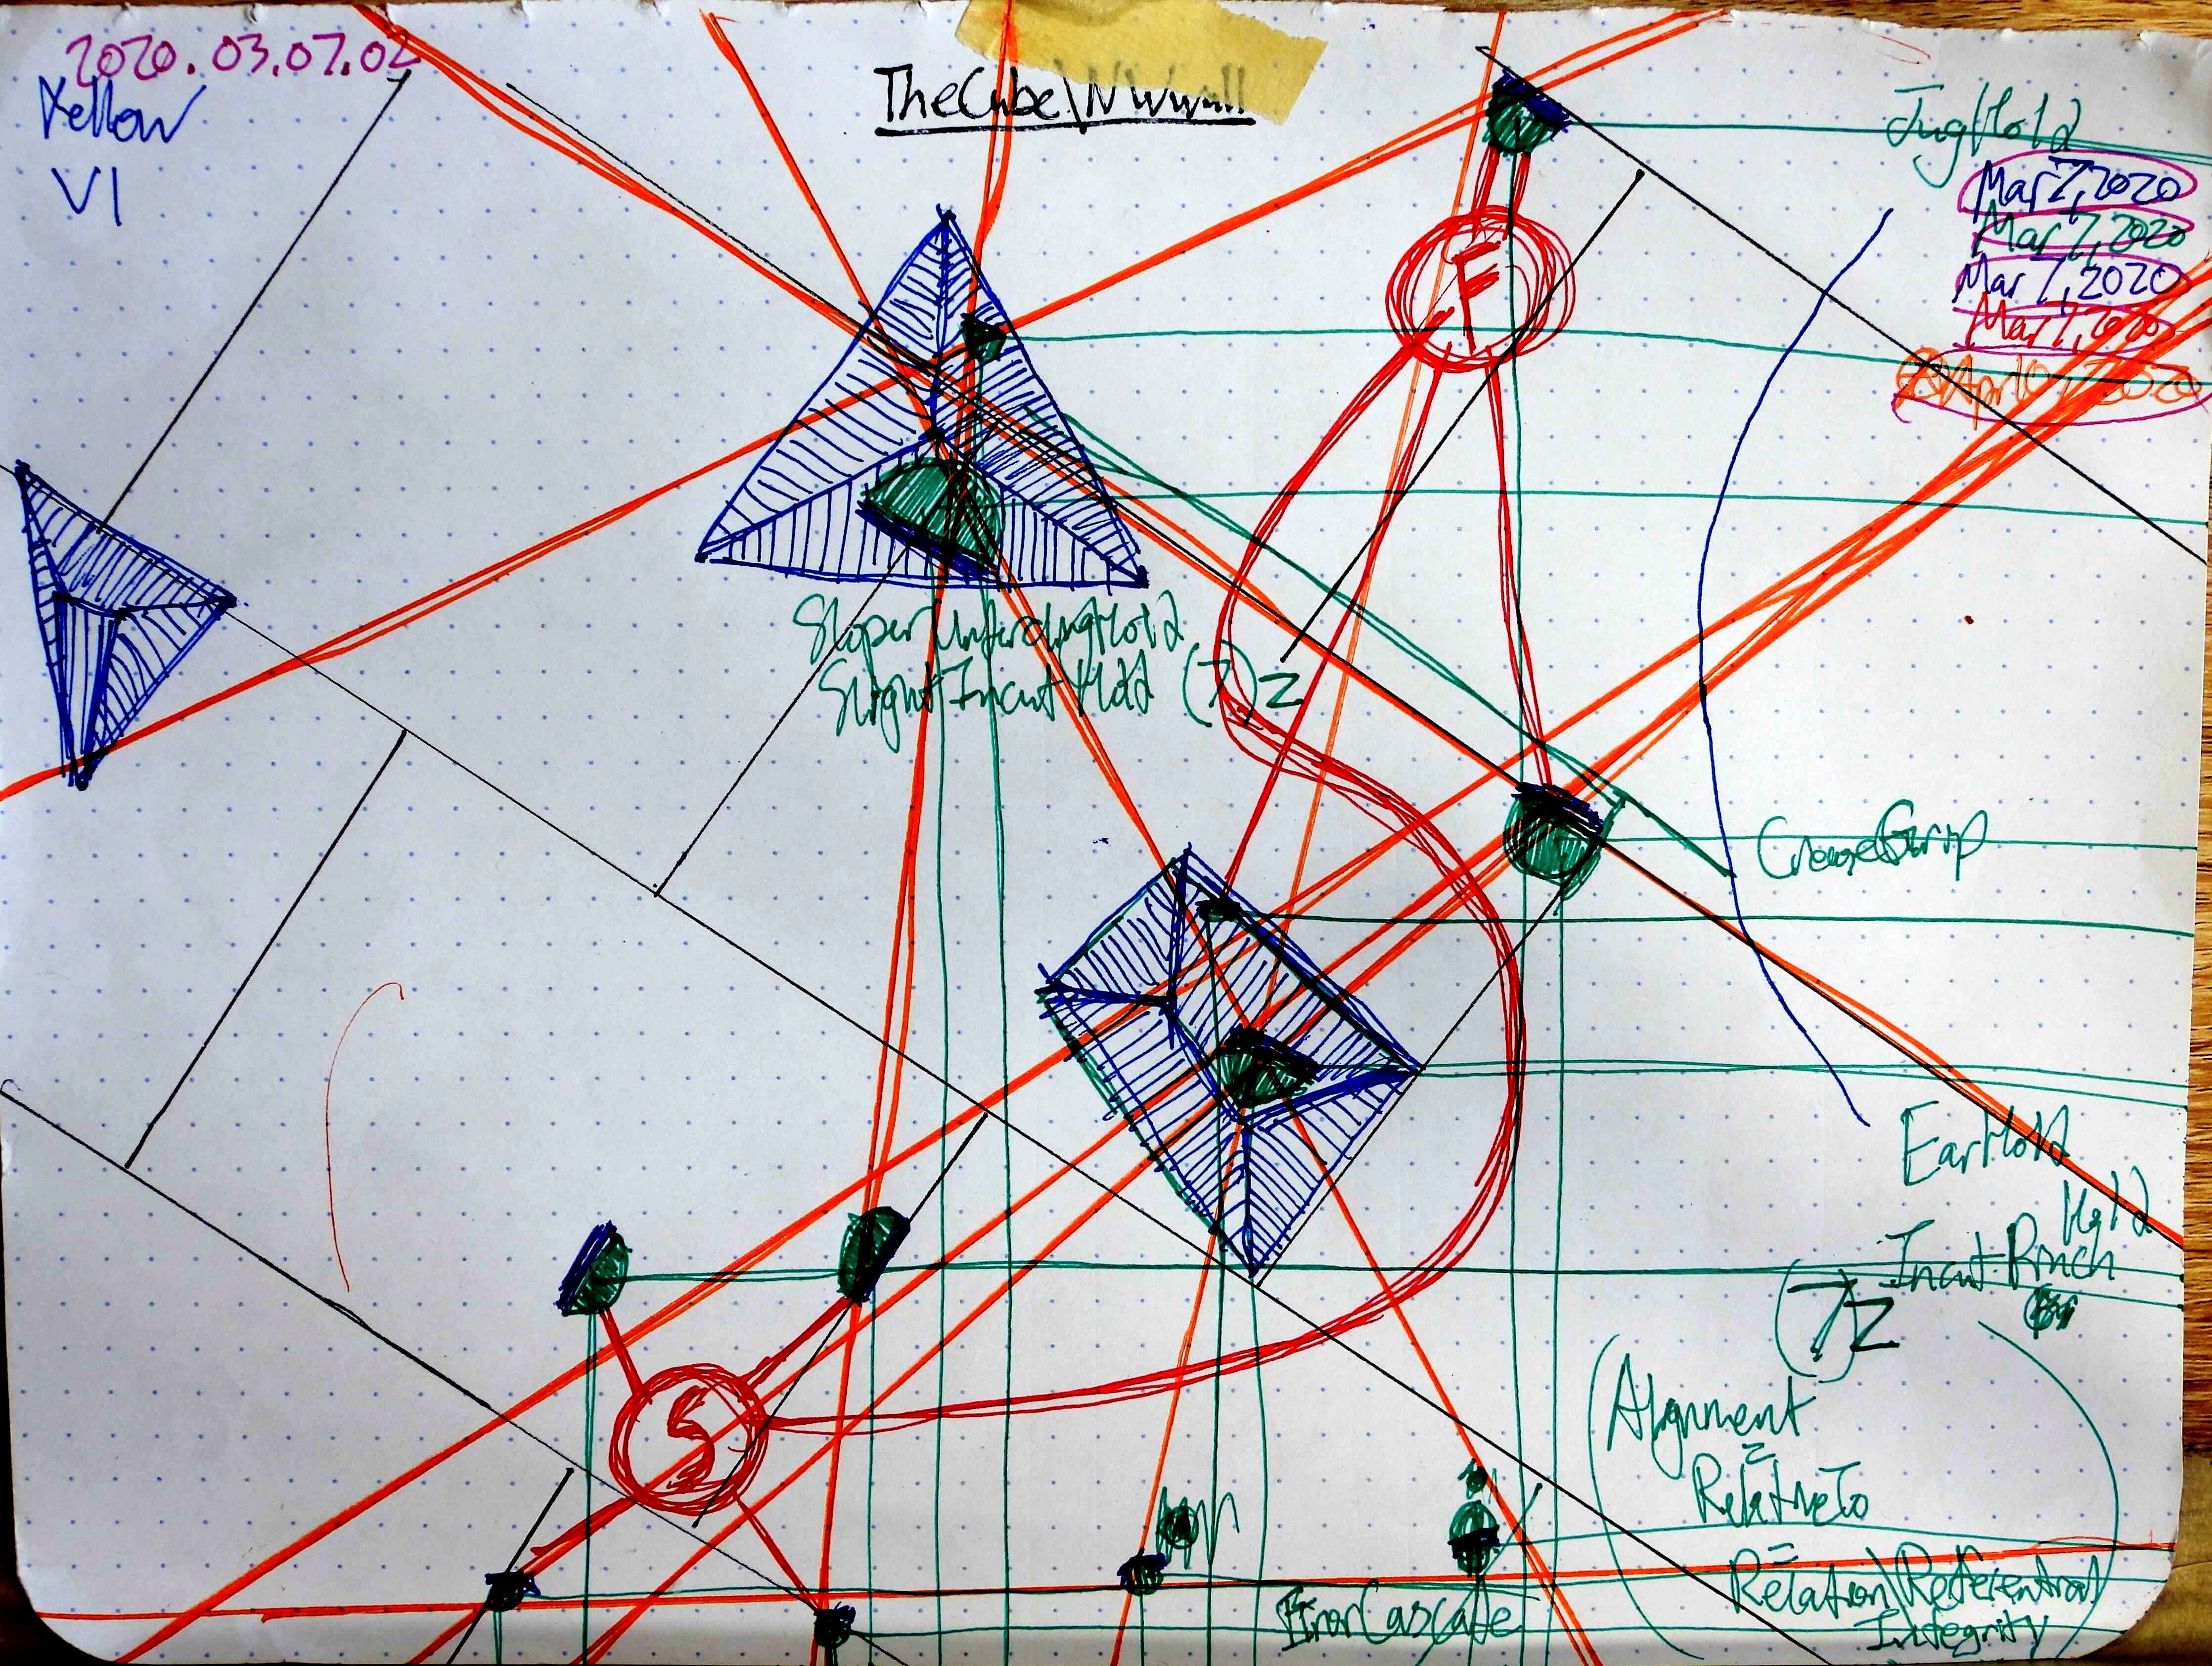 2020.03.07.02
Yellow
VI
TheCube\NWWall
JugHold
Mar 7, 2020
Mar 7, 2020
Mar 7, 2020
Mar 7, 2020
2020
F
Sloper
Slight Incut Hold (7)Z
Grip
EarHold
Hold
Incut Pinch
(7)Z
S
Alignment
=
RelativeTo
=
Relation\Referential
Integrity
ErrorCascade